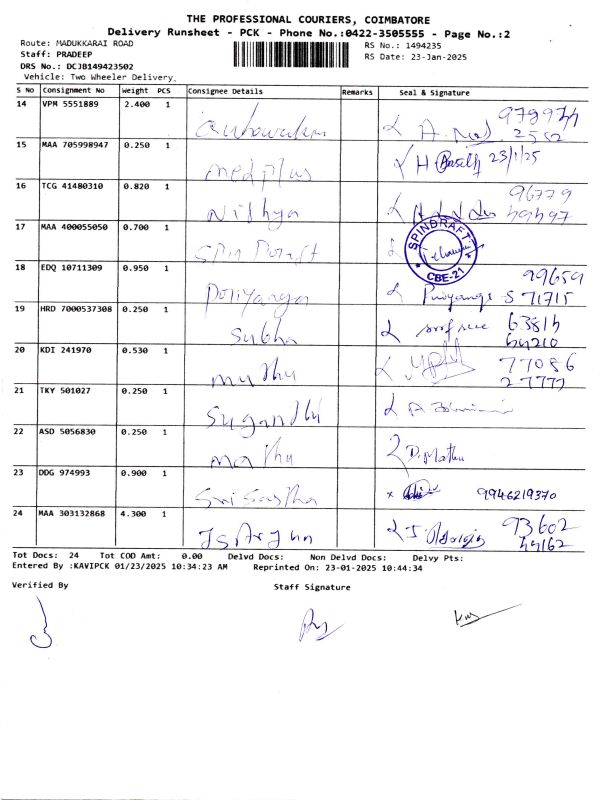 THE PROFESSIONAL COURIERS, COIMBATORE
Delivery Runsheet - PCK - Phone No.:0422-3505555 - Page No.:2
Route: MADUKKARAI ROAD
Staff: PRADEEP
DRS No.: DCJB149423502
Vehicle: Two Wheeler Delivery
RS No.: 1494235
RS Date: 23-Jan-2025
S No Consignment No Weight PCS Consignee Details Remarks Seal & Signature
14 VPM 5551889 2.400 1
15 MAA 705998947 0.250 1 medplus 23/1/25
16 TCG 41480310 0.820 1 Nithya 96779
17 MAA 400055050 0.700 1 SPINDRAFT CBE-21
18 EDQ 10711309 0.950 1 Priyanga 99659
S 71715
19 HRD 7000537308 0.250 1 Subha
20 KDI 241970 0.530 1 muthu 77086
27777
21 TKY 501027 0.250 1 Sugandhi
22 ASD 5056830 0.250 1 mathu D.Mathu
23 DDG 974993 0.900 1 Sri Sastha 9946219370
24 MAA 303132868 4.300 1 JS Arjun 93602
Tot Docs: 24 Tot COD Amt: 0.00 Delvd Docs: Non Delvd Docs: Delvy Pts:
Entered By :KAVIPCK 01/23/2025 10:34:23 AM Reprinted On: 23-01-2025 10:44:34
Verified By Staff Signature